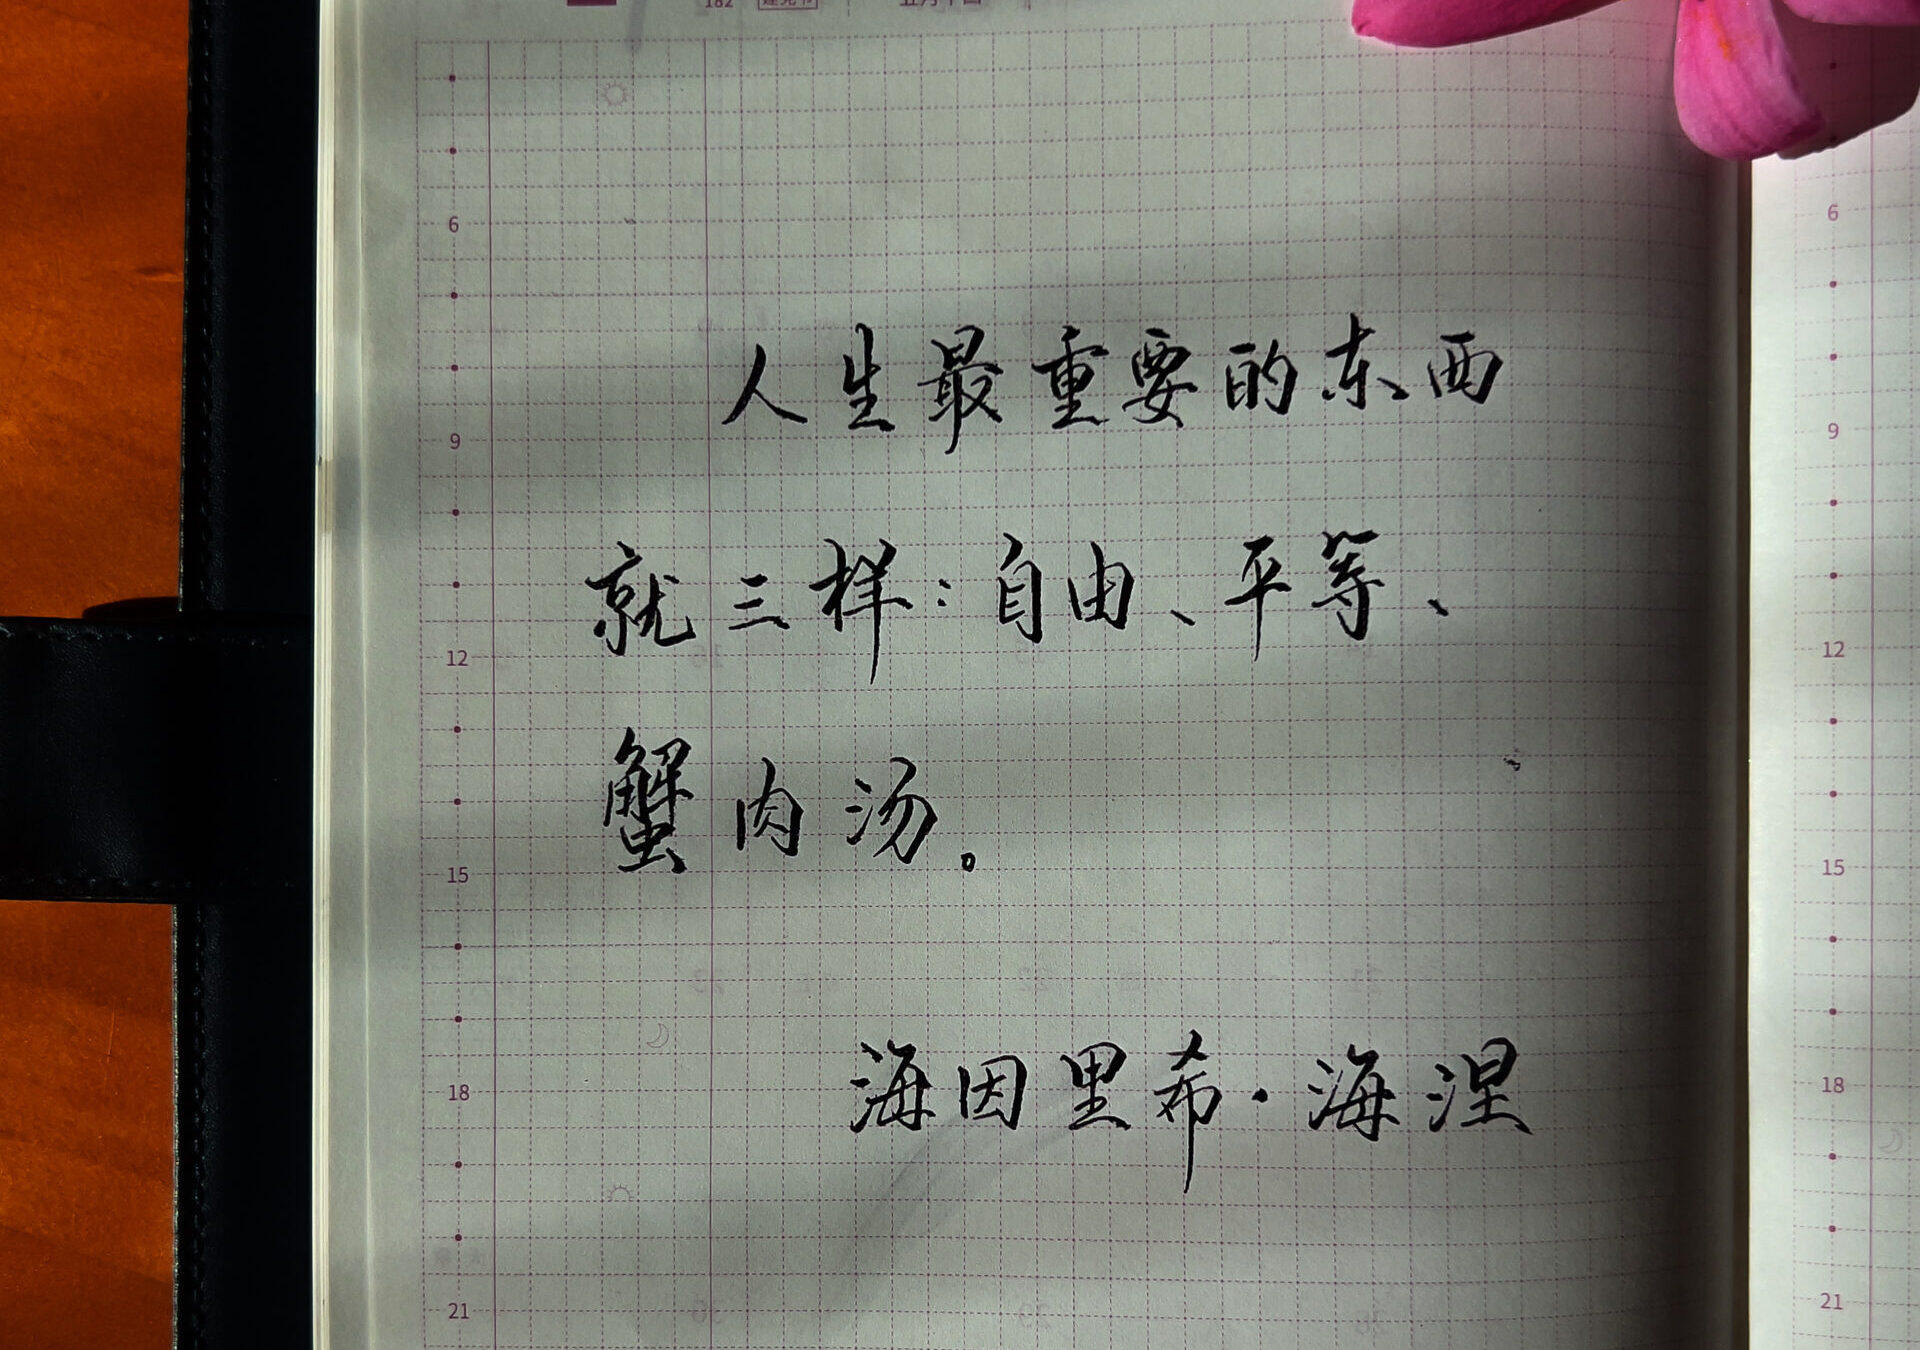 182 建党节 五月十四
人生最重要的东西
就三样：自由、平等、
蟹肉汤。
海因里希·海涅
6
9
12
15
18
21
6
9
12
15
18
21